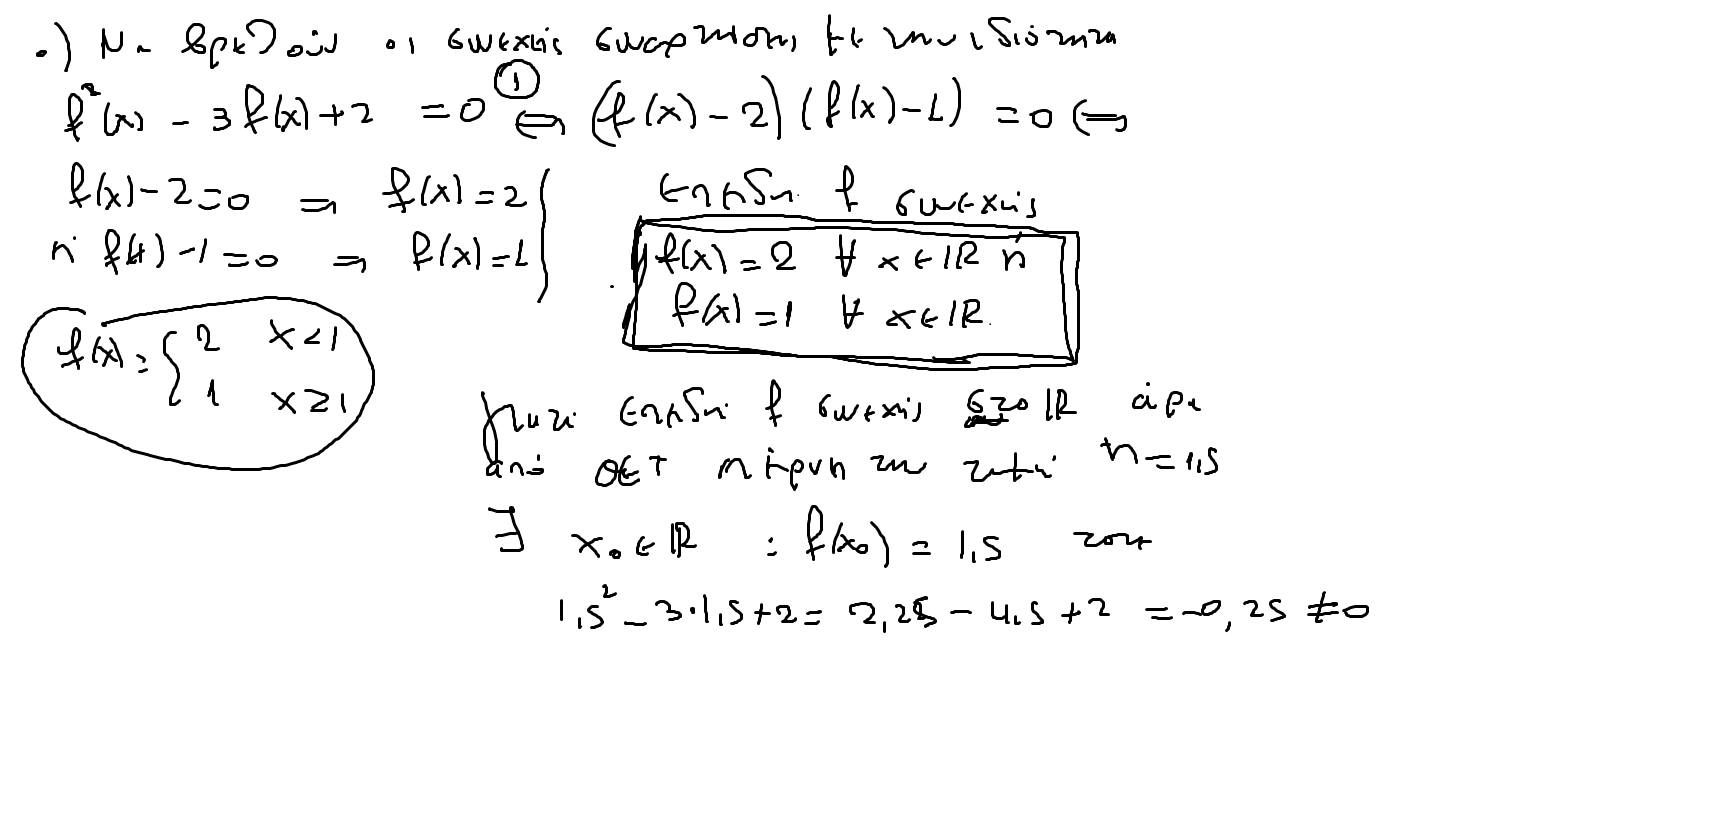 .) Να βρεθούν οι συνεχείς συναρτήσεις με την ιδιότητα
f²(x) - 3f(x) + 2 = 0 ① ⇔ (f(x) - 2)(f(x) - 1) = 0 ⇔
f(x) - 2 = 0 ⇒ f(x) = 2
ή f(x) - 1 = 0 ⇒ f(x) = 1
επειδή f συνεχής
f(x) = 2 ∀ x ∈ ℝ ή
f(x) = 1 ∀ x ∈ ℝ.
f(x) = { 2 x < 1
1 x ≥ 1
γιατί επειδή f συνεχής στο ℝ άρα
από ΘΕΤ παίρνει την τιμή η = 1,5
∃ x₀ ∈ ℝ : f(x₀) = 1,5 τότε
1,5² - 3·1,5 + 2 = 2,25 - 4,5 + 2 = -0,25 ≠ 0